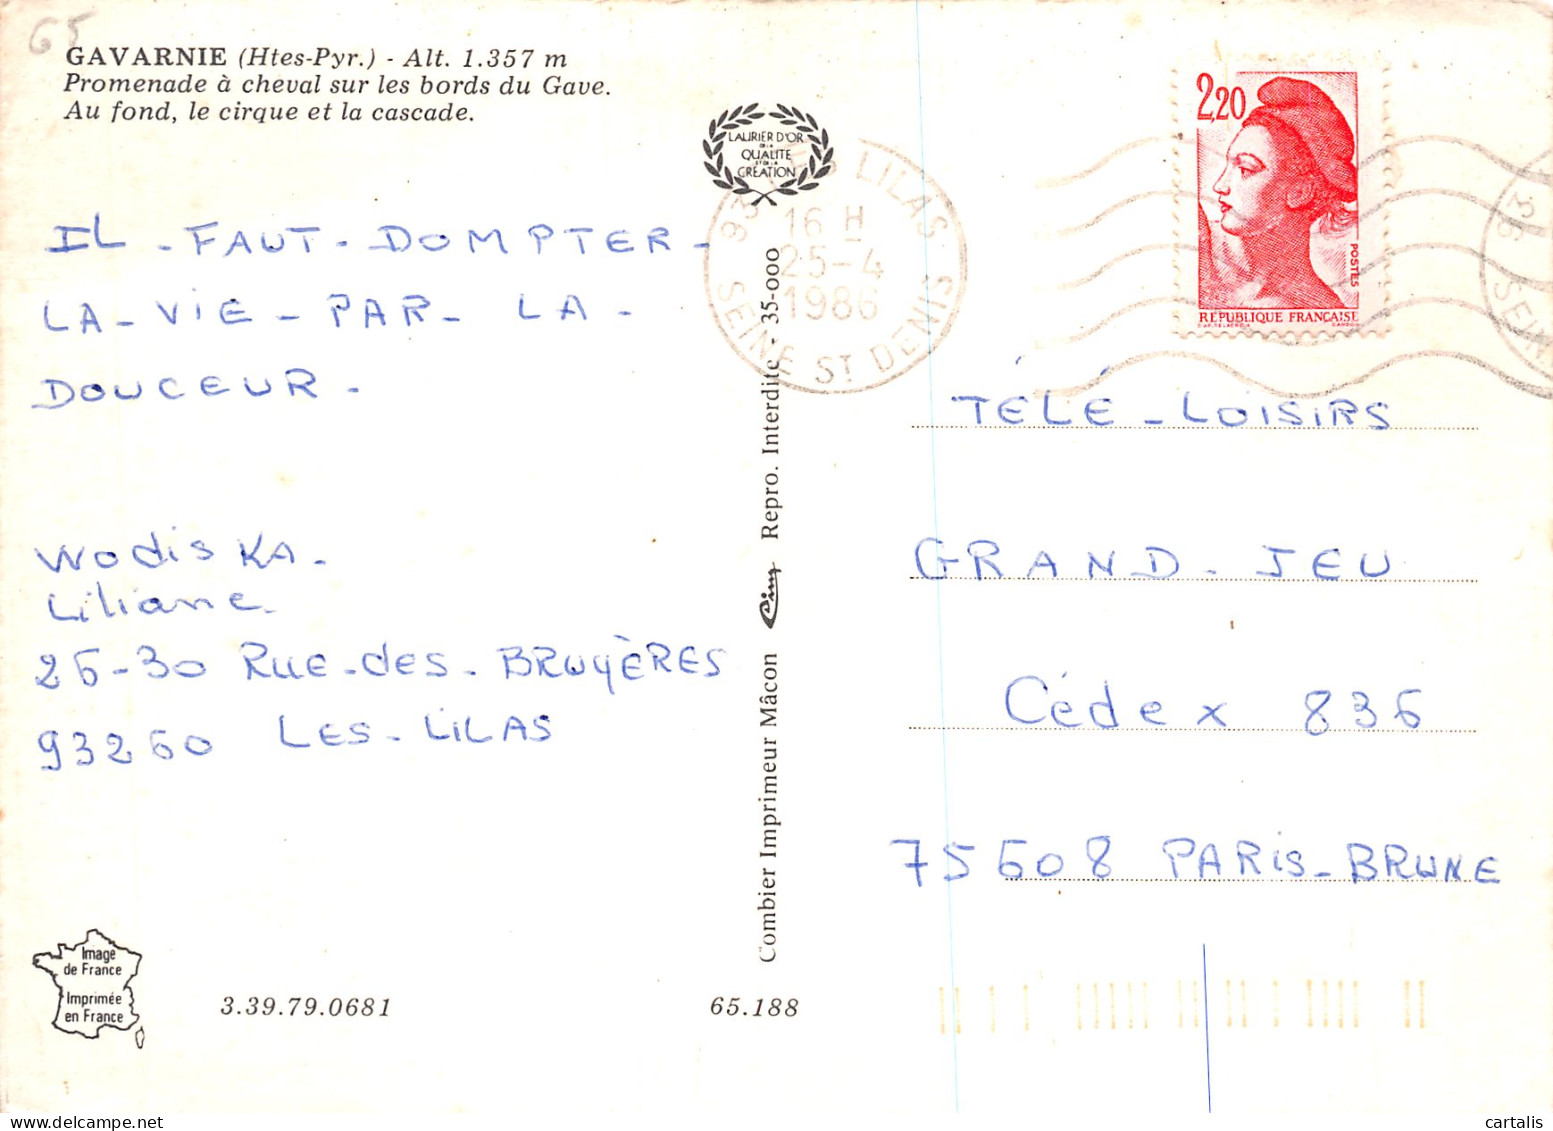 65
GAVARNIE (Htes-Pyr.) - Alt. 1.357 m
Promenade à cheval sur les bords du Gave.
Au fond, le cirque et la cascade.
LAURIER D'OR
DE LA
QUALITE
ET DE LA
CRÉATION
93 LES LILAS
16 H
25-4
1986
SEINE ST DENIS
2,20
POSTES
RÉPUBLIQUE FRANÇAISE
93
SEINE
IL - FAUT - DOMPTER -
LA - VIE - PAR - LA -
DOUCEUR -
WODISKA -
Liliane.
26-30 RUE-des- BRUYÈRES
93260 LES-LILAS
Combier Imprimeur Mâcon Cim Repro. Interdite - 35-000
TÉLÉ - LOISIRS
GRAND - JEU
Cédex 836
75608 PARIS-BRUNE
Image
de France
Imprimée
en France
3.39.79.0681
65.188
cartalis